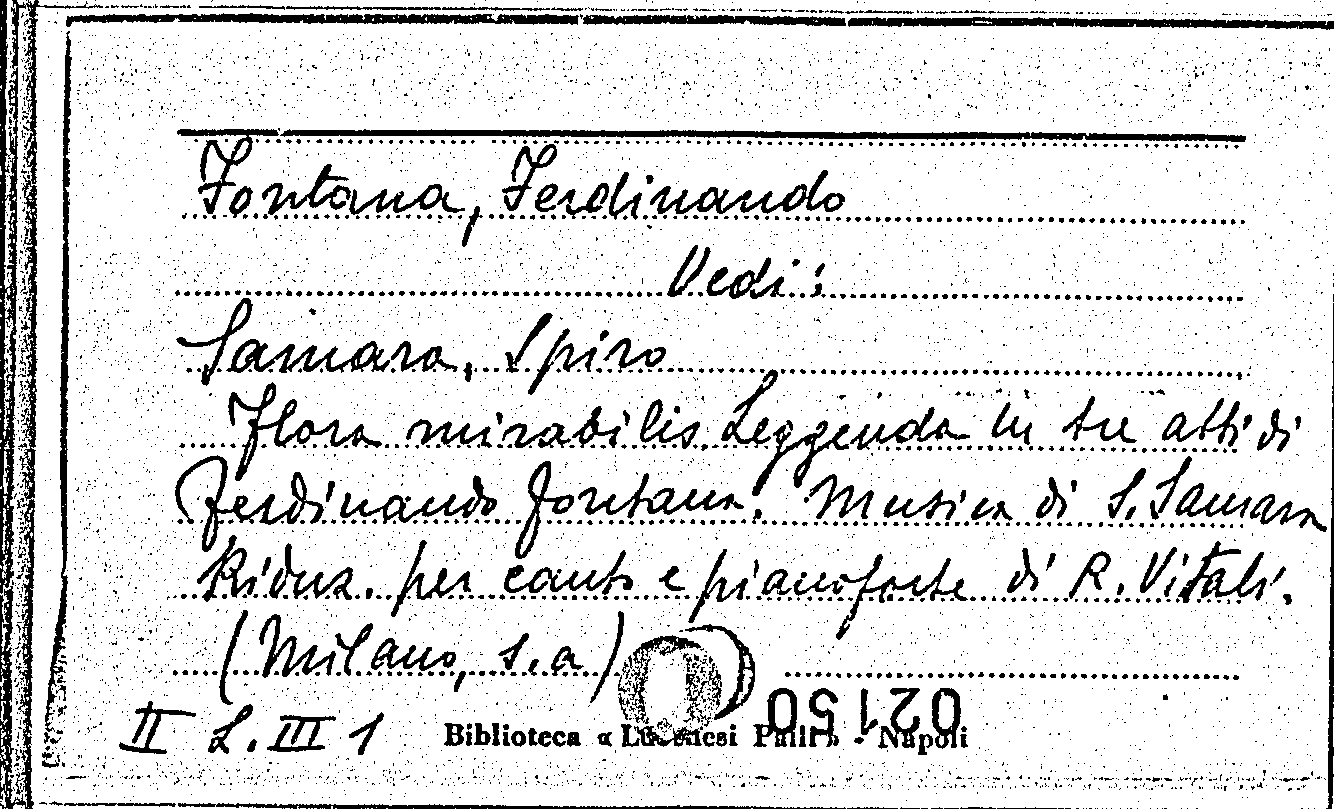 Fontana, Ferdinando
Vedi:
Samara, Spiro
Flora mirabilis Leggenda in tre atti di
Ferdinando Fontana. Musica di S. Samara
Riduz. per canto e pianoforte di R. Vitali.
(Milano, s.a)
02150
II L. III 1
Biblioteca « Lucchesi Palli » - Napoli